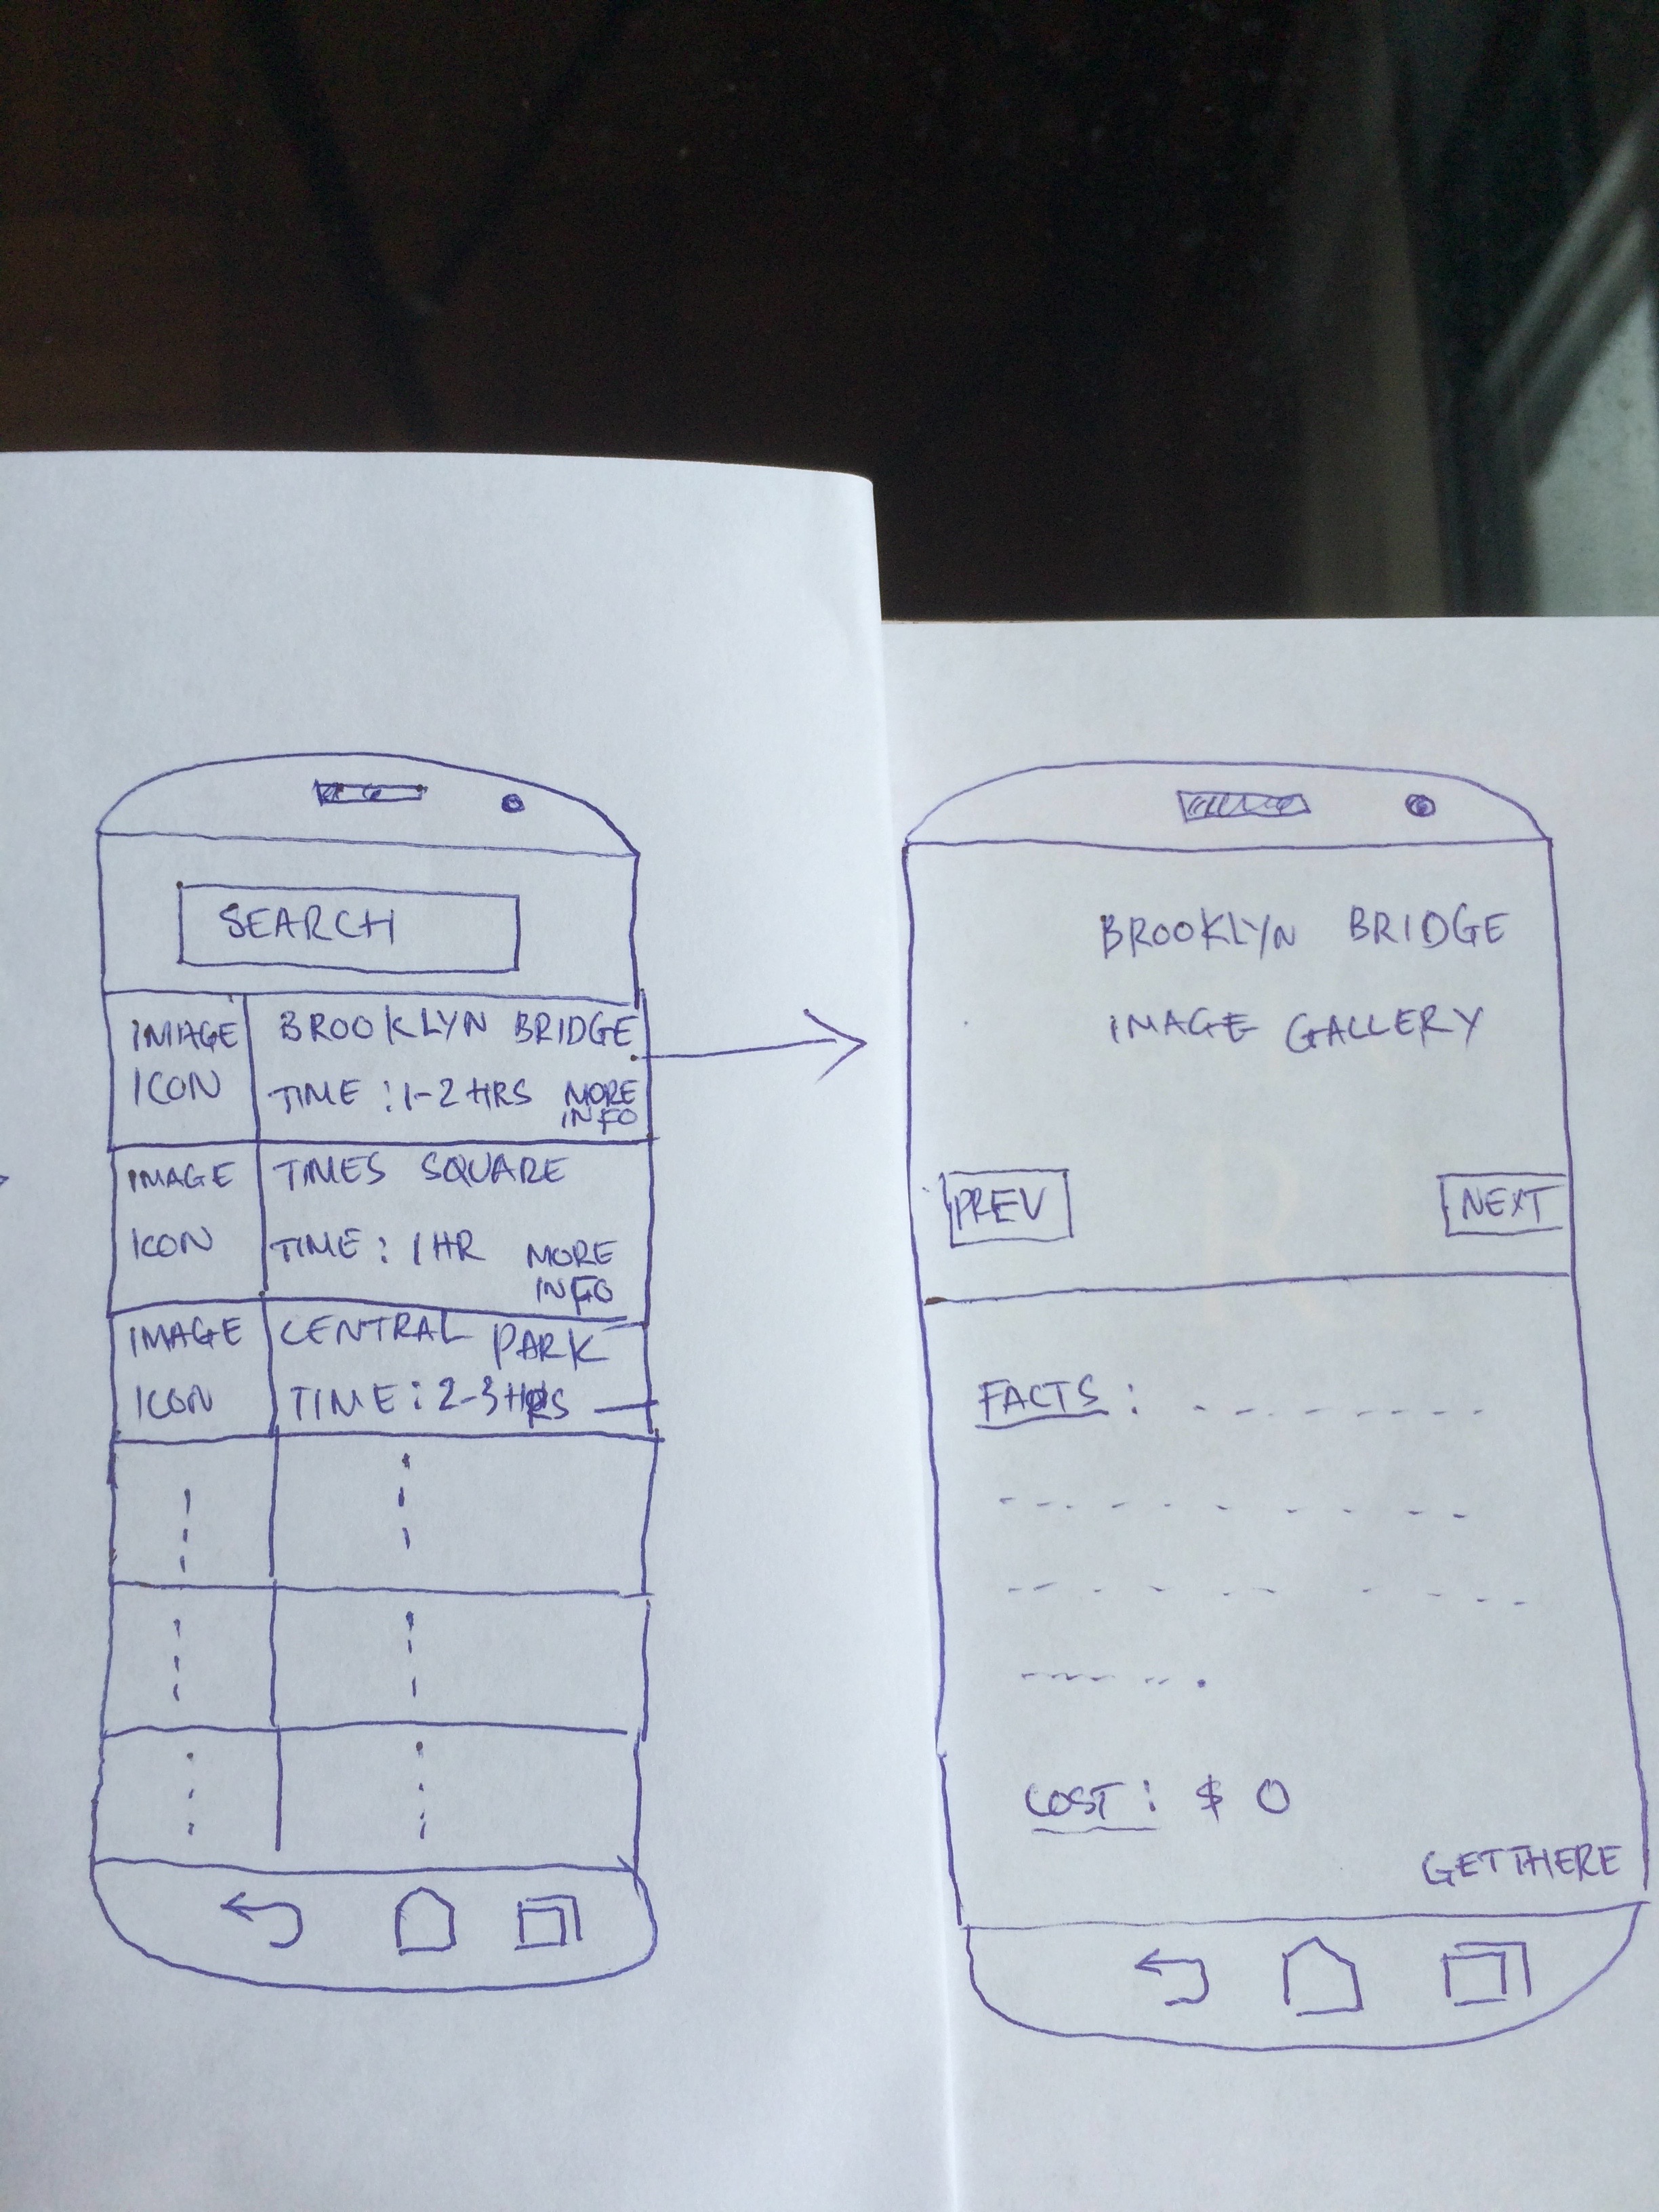 SEARCH
IMAGE
ICON
BROOKLYN BRIDGE
TIME : 1-2 HRS
MORE
INFO
IMAGE
ICON
TIMES SQUARE
TIME : 1 HR
MORE
INFO
IMAGE
ICON
CENTRAL PARK
TIME : 2-3 HRS
BROOKLYN BRIDGE
IMAGE GALLERY
PREV
NEXT
FACTS :
COST : $ 0
GET THERE